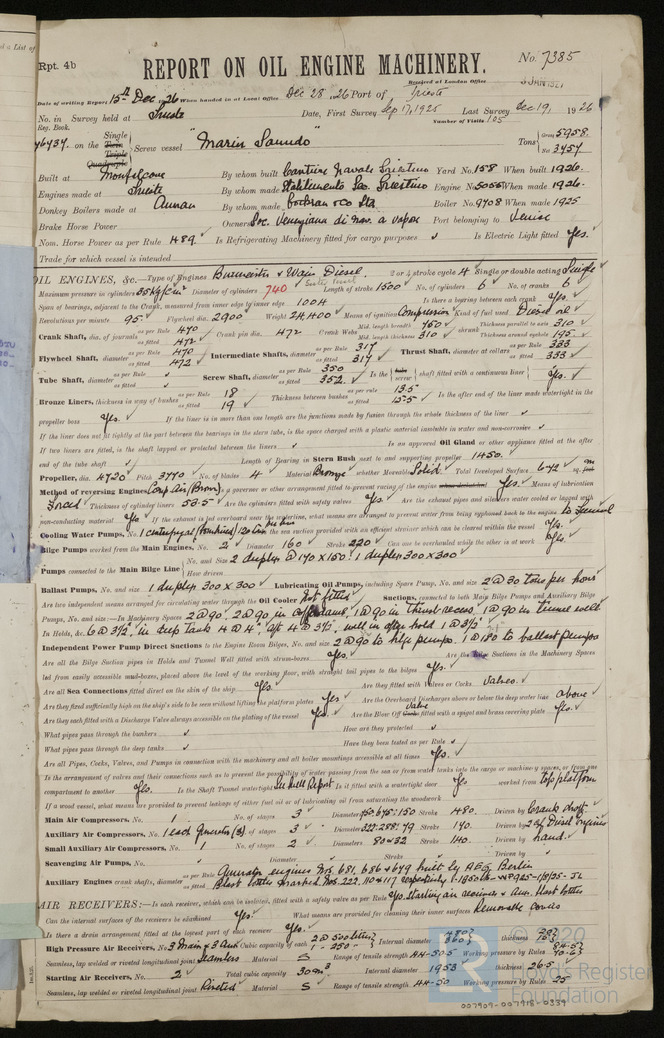 Rpt. 4b
REPORT ON OIL ENGINE MACHINERY.
No. 7385
Received at London Office
3 JAN 1927
Date of writing Report 15th Dec. 1926 When handed in at Local Office Dec 28 1926 Port of Trieste
No. in Survey held at Trieste Date, First Survey Sep 17, 1925 Last Survey Dec 19, 1926
Reg. Book. Number of Visits 105
Single
on the Twin Triple Quadruple Screw vessel "Marin Sanudo" Tons Gross 5958 Net 3457
Built at Monfalcone By whom built Cantiere Navale Triestino Yard No. 158 When built 1926
Engines made at Trieste By whom made Stabilimento Tec. Triestino Engine No. 5055 When made 1926
Donkey Boilers made at Annan By whom made Cochran & Co Ltd Boiler No. 9708 When made 1925
Brake Horse Power Owners Soc. Veneziana di Nav. a vapore Port belonging to Venice
Nom. Horse Power as per Rule 489 Is Refrigerating Machinery fitted for cargo purposes Is Electric Light fitted Yes.
Trade for which vessel is intended
OIL ENGINES, &c.—Type of Engines Burmeister & Wain Diesel. 2 or 4 stroke cycle 4 Single or double acting Single
Maximum pressure in cylinders 35 kg/cm² Diameter of cylinders 740 Length of stroke 1500 No. of cylinders 6 No. of cranks 6
Span of bearings, adjacent to the Crank, measured from inner edge to inner edge 1004 Is there a bearing between each crank Yes.
Revolutions per minute 95 Flywheel dia. 2900 Weight 24,400 Means of ignition Compression Kind of fuel used Diesel oil
Crank Shaft, dia. of journals as per Rule 470 as fitted 472 Crank pin dia. 472 Crank Webs Mid. length breadth 750 Mid. length thickness 310 Thickness parallel to axis 310 Thickness around eyehole 195
Flywheel Shaft, diameter as per Rule 470 as fitted 472 Intermediate Shafts, diameter as per Rule 317 as fitted 317 Thrust Shaft, diameter at collars as per Rule 333 as fitted 333
Tube Shaft, diameter as per Rule as fitted Screw Shaft, diameter as per Rule 350 as fitted 352 Is the tube screw shaft fitted with a continuous liner Yes.
Bronze Liners, thickness in way of bushes as per Rule 18 as fitted 19 Thickness between bushes as per rule 13.5 as fitted 15.5 Is the after end of the liner made watertight in the
propeller boss Yes. If the liner is in more than one length are the junctions made by fusion through the whole thickness of the liner
If the liner does not fit tightly at the part between the bearings in the stern tube, is the space charged with a plastic material insoluble in water and non-corrosive
If two liners are fitted, is the shaft lapped or protected between the liners Is an approved Oil Gland or other appliance fitted at the after
end of the tube shaft Length of Bearing in Stern Bush next to and supporting propeller 1450.
Propeller, dia. 4720 Pitch 3770 No. of blades 4 Material Bronze whether Moveable Solid Total Developed Surface 6.42 sq. m
Method of reversing Engines Comp Air (Brown) Is a governor or other arrangement fitted to prevent racing of the engine Yes. Means of lubrication
Forced Thickness of cylinder liners 53.5 Are the cylinders fitted with safety valves Yes Are the exhaust pipes and silencers water cooled or lagged with
non-conducting material Yes If the exhaust is led overboard near the waterline, what means are arranged to prevent water from being syphoned back to the engine to Funnel
Cooling Water Pumps, No. 1 centrifugal Is the sea suction provided with an efficient strainer which can be cleared within the vessel Yes.
Bilge Pumps worked from the Main Engines, No. 2 Diameter 160 Stroke 220 Can one be overhauled while the other is at work Yes.
Pumps connected to the Main Bilge Line No. and Size 2 duplex @ 170 x 150 : 1 duplex 300 x 300
How driven
Ballast Pumps, No. and size 1 duplex 300 x 300 Lubricating Oil Pumps, including Spare Pump, No. and size 2 @ 30 tons per hour
Are two independent means arranged for circulating water through the Oil Cooler Not fitted Suctions, connected to both Main Bilge Pumps and Auxiliary Bilge
Pumps, No. and size:—In Machinery Spaces 2 @ 90, 2 @ 90 in cofferdams, 1 @ 90 in thrust recess, 1 @ 90 in tunnel well
In Holds, &c. 6 @ 3½", in deep tank 4 @ 4", aft 4 @ 3½", well in after hold 1 @ 3½"
Independent Power Pump Direct Suctions to the Engine Room Bilges, No. and size 2 @ 90 to bilge pumps. 1 @ 180 to ballast pumps
Are all the Bilge Suction pipes in Holds and Tunnel Well fitted with strum-boxes Yes. Are the Bilge Suctions in the Machinery Spaces
led from easily accessible mud-boxes, placed above the level of the working floor, with straight tail pipes to the bilges Yes.
Are all Sea Connections fitted direct on the skin of the ship Yes. Are they fitted with Valves or Cocks Valves.
Are they fixed sufficiently high on the ship's side to be seen without lifting the platform plates Yes Are the Overboard Discharges above or below the deep water line above
Are they each fitted with a Discharge Valve always accessible on the plating of the vessel Yes. Are the Blow Off Valve fitted with a spigot and brass covering plate Yes.
What pipes pass through the bunkers How are they protected
What pipes pass through the deep tanks Have they been tested as per Rule
Are all Pipes, Cocks, Valves, and Pumps in connection with the machinery and all boiler mountings accessible at all times Yes.
Is the arrangement of valves and their connections such as to prevent the possibility of water passing from the sea or from water tanks into the cargo or machinery spaces, or from one
compartment to another Yes. Is the Shaft Tunnel watertight See Hull Report Is it fitted with a watertight door Yes worked from top platform
If a wood vessel, what means are provided to prevent leakage of either fuel oil or of lubricating oil from saturating the woodwork
Main Air Compressors, No. 1 No. of stages 3 Diameters 750.675.150 Stroke 480. Driven by Crank shaft
Auxiliary Air Compressors, No. 1 each generator (3) No. of stages 3 Diameters 322.288.79 Stroke 190. Driven by Diesel engines
Small Auxiliary Air Compressors, No. 1 No. of stages 2 Diameters 80 & 32 Stroke 140. Driven by hand.
Scavenging Air Pumps, No. Diameter Stroke Driven by
Auxiliary Engines crank shafts, diameter as per Rule as fitted Generator engines Nos. 681, 686 & 679 built by AEG Berlin
AIR RECEIVERS:—Is each receiver, which can be isolated, fitted with a safety valve as per Rule Yes, starting air receivers & Aux. blast bottles
Can the internal surfaces of the receivers be examined Yes. What means are provided for cleaning their inner surfaces Removable covers
Is there a drain arrangement fitted at the lowest part of each receiver Yes.
High Pressure Air Receivers, No. 3 main & 3 Aux Cubic capacity of each 2 @ 500 litres 1 - 250 Internal diameter thickness
Seamless, lap welded or riveted longitudinal joint Seamless Material S Range of tensile strength 44-50.5 Working pressure by Rules
Starting Air Receivers, No. 2 Total cubic capacity 30 m³ Internal diameter 1953 thickness 26.5
Seamless, lap welded or riveted longitudinal joint Riveted Material S Range of tensile strength 44-50 Working pressure by Rules 25
© 2020
Lloyd's Register
Foundation
007909-007918-0339